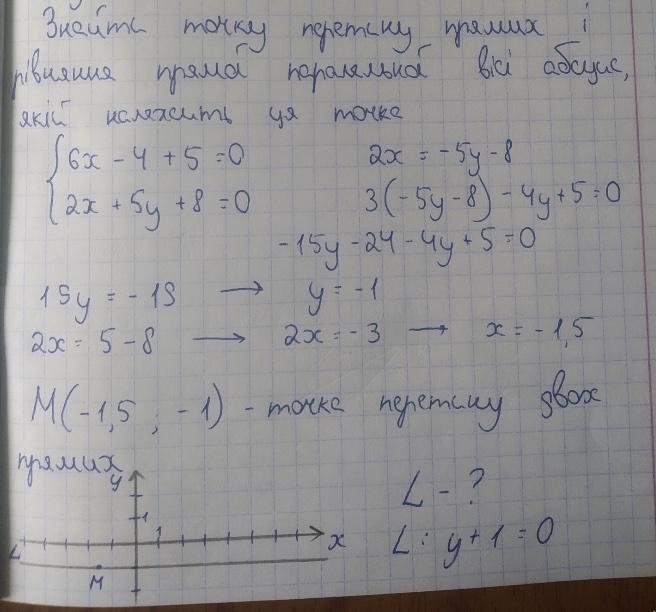 Знайти точку перетину прямих і
рівняння прямої паралельної вісі абсцис,
якій належить ця точка
6x - 4 + 5 = 0
2x = -5y - 8
2x + 5y + 8 = 0
3(-5y - 8) - 4y + 5 = 0
-15y - 24 - 4y + 5 = 0
19y = -19 → y = -1
2x = 5 - 8 → 2x = -3 → x = -1,5
M(-1,5 ; -1) - точка перетину двох
прямих
y
L - ?
1
1
x
L : y + 1 = 0
L
M